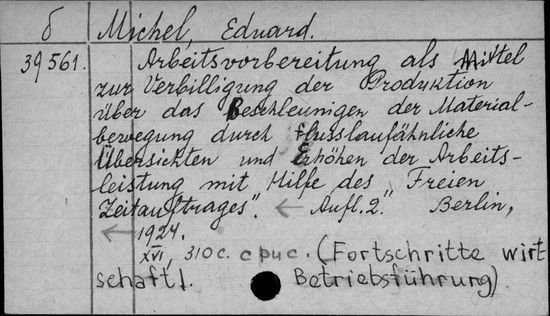 б Michel, Eduard.
39561. Arbeitsvorbereitung als Mittel
zur Verbilligung der Produktion
über das Beschleunigen der Material-
bewegung durch flusslaufähnliche
Übersichten und Erhöhen der Arbeits-
leistung mit Hilfe des „Freien
Zeitauftrages". ← Aufl. 2. Berlin,
← 1924.
XVI, 310 c. с рис. (Fortschritte wirt
schaftl. Betriebsführung).